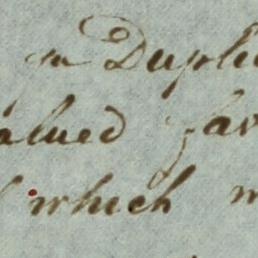 in Duplic
alued fav
which